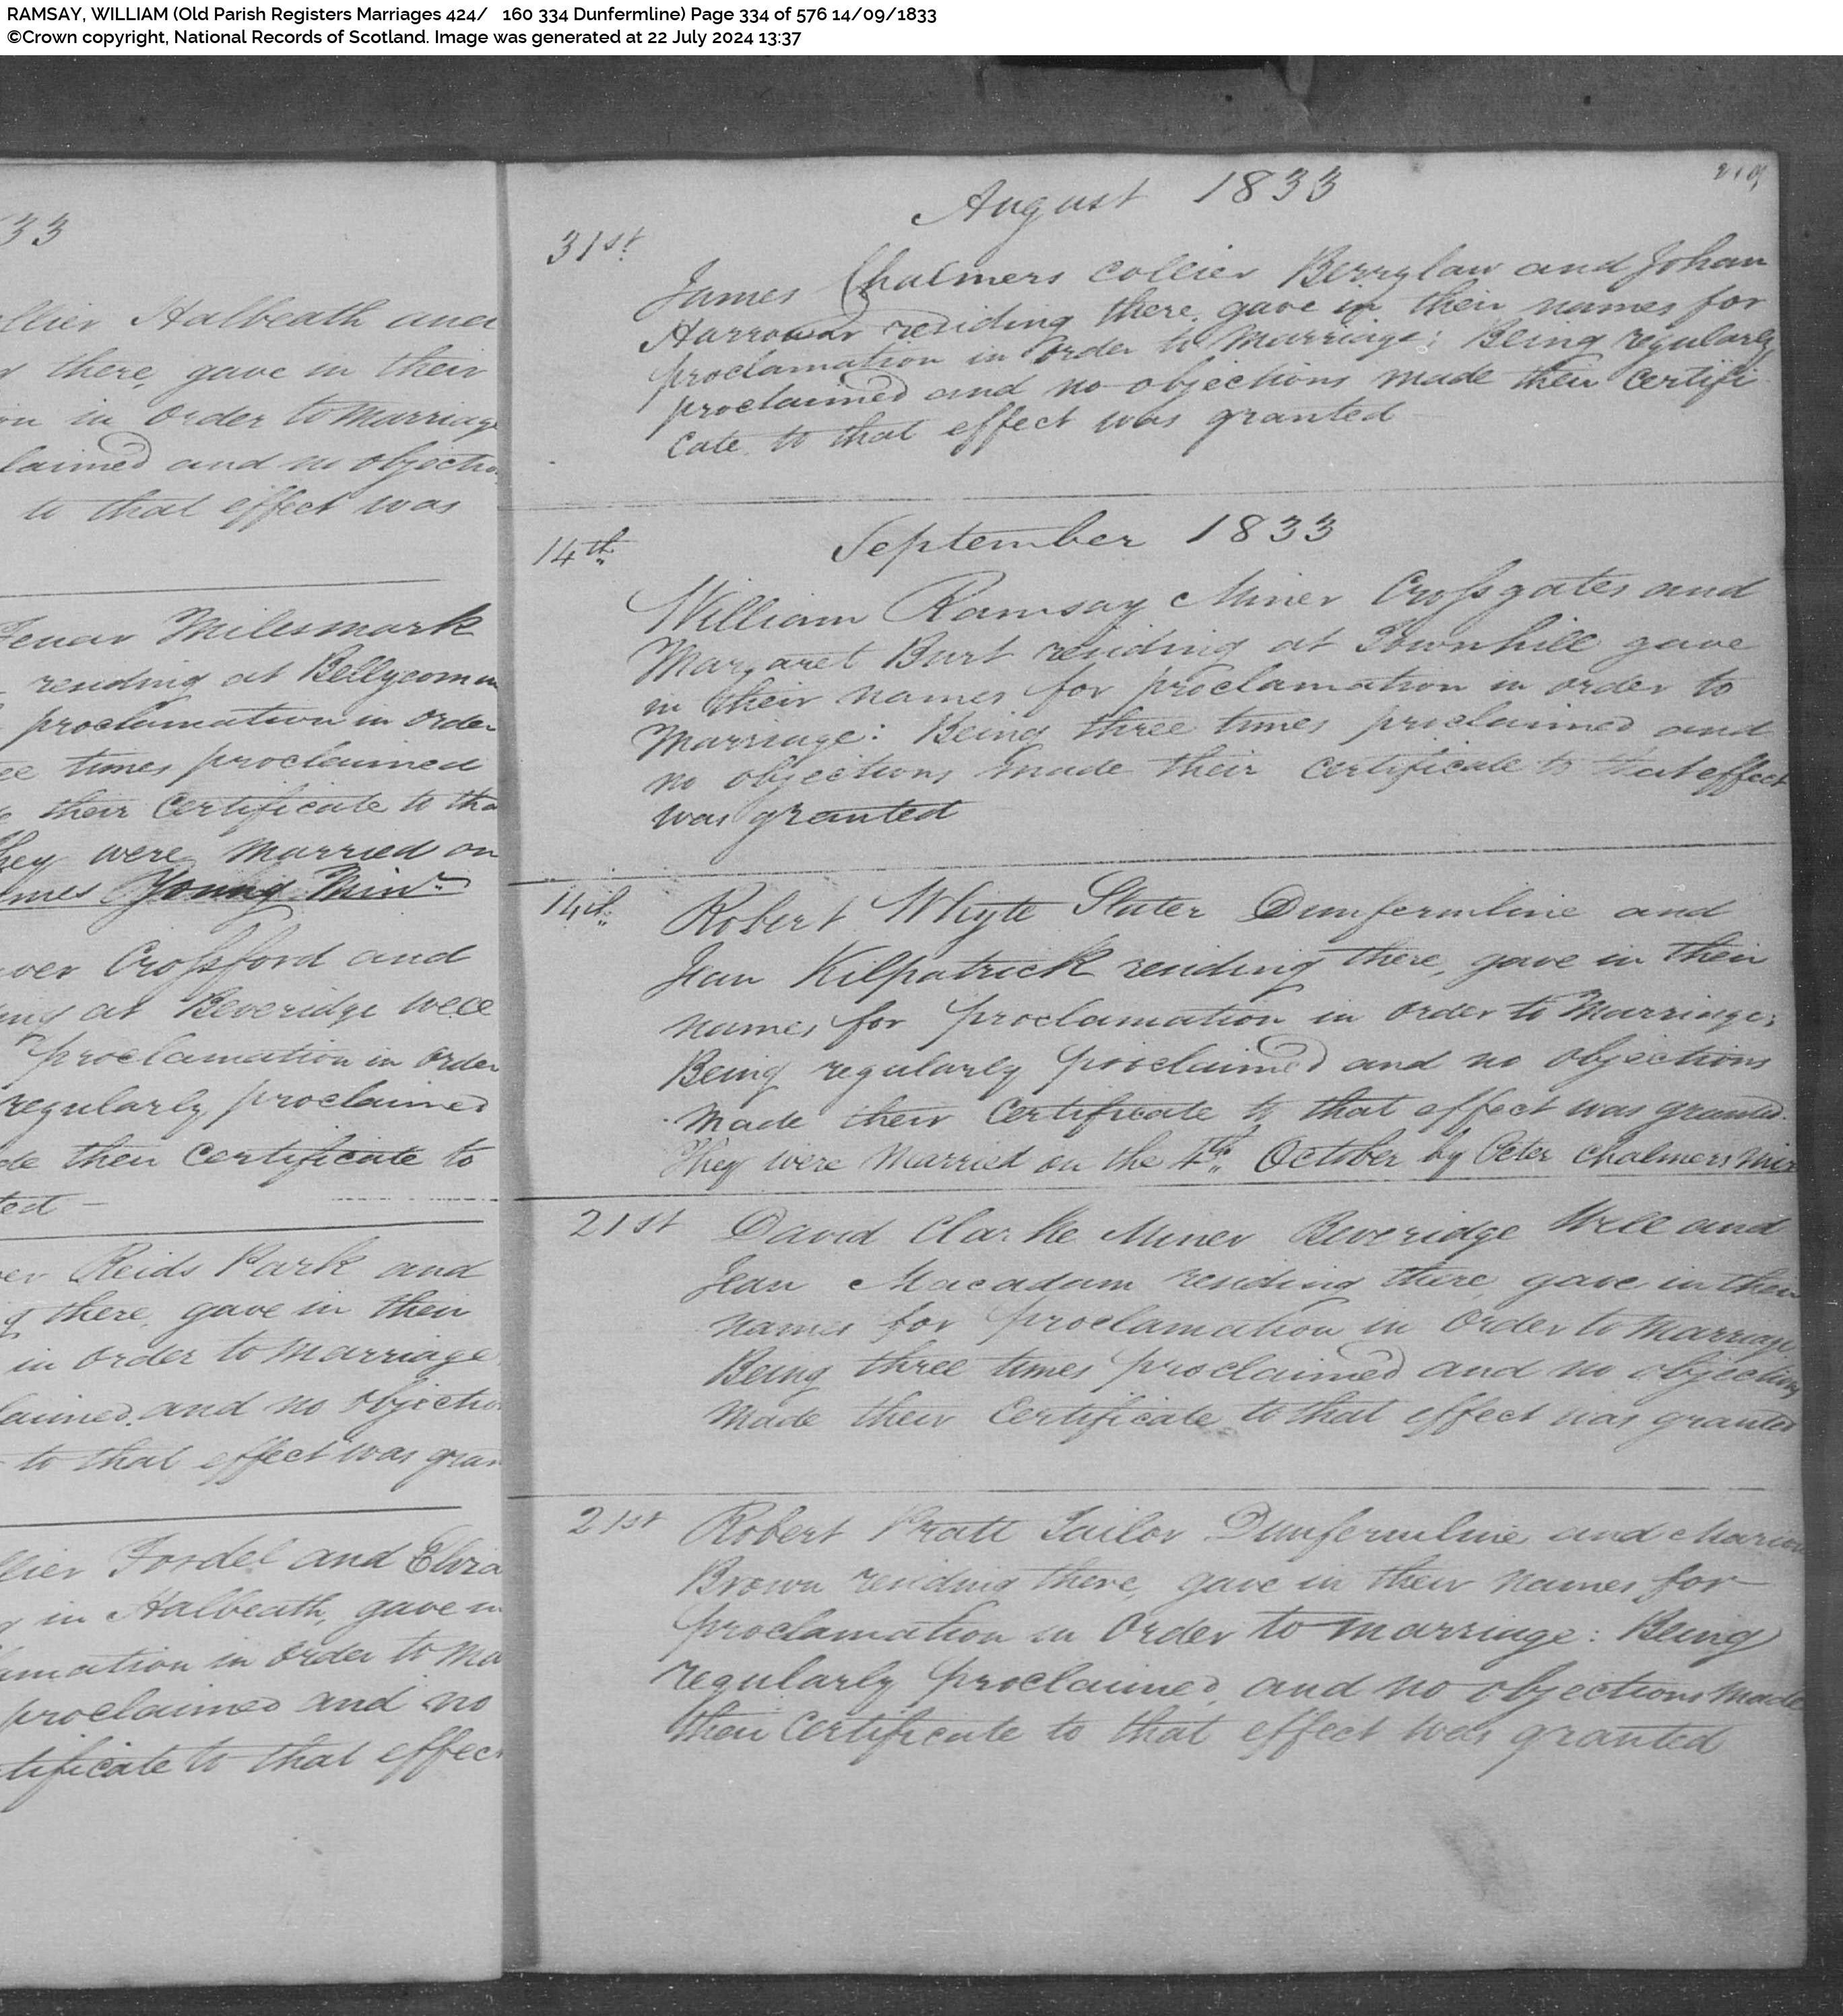 RAMSAY, WILLIAM (Old Parish Registers Marriages 424/ 160 334 Dunfermline) Page 334 of 576 14/09/1833
©Crown copyright, National Records of Scotland. Image was generated at 22 July 2024 13:37
33
Halbeath and
there, gave in their
in order to marriage
and no objectio
to that effect was
Milesmark
residing at Bellycomm
proclamation in order
times proclaimed
their Certificate to tha
were married on
Young Minr
Crossford and
at Beveridge Well
proclamation in order
regularly proclaimed
their Certificate to
Reids Park and
there, gave in their
in order to marriage
and no objectio
to that effect was gran
Fordel and Eliza
in Halbeath, gave in
in order to ma
proclaimed and no
to that effect
August 1833
31st
James Chalmers Collier Berrylaw and Johan
Harrower residing there, gave in their names for
proclamation in order to Marriage; Being regularly
proclaimed and no objections made their Certifi
cate to that effect was granted
September 1833
14th
William Ramsay Miner Crossgates and
Margaret Burt residing at Townhill gave
in their names for proclamation in order to
Marriage: Being three times proclaimed and
no objections made their Certificate to that effect
was granted
14th Robert Whyte Slater Dunfermline and
Jean Kilpatrick residing there, gave in their
names for proclamation in order to Marriage;
Being regularly proclaimed and no objections
made their Certificate to that effect was granted.
They were Married on the 4th October by Peter Chalmers Minr
21st David Clarke Miner Beveridge Well and
Jean Macadam residing there, gave in their
names for proclamation in order to Marriage
Being three times proclaimed and no objections
made their Certificate to that effect was granted
21st Robert Pratt Tailor Dunfermline and Marion
Brown residing there, gave in their names for
proclamation in order to marriage: Being
regularly proclaimed, and no objections made
their Certificate to that effect was granted